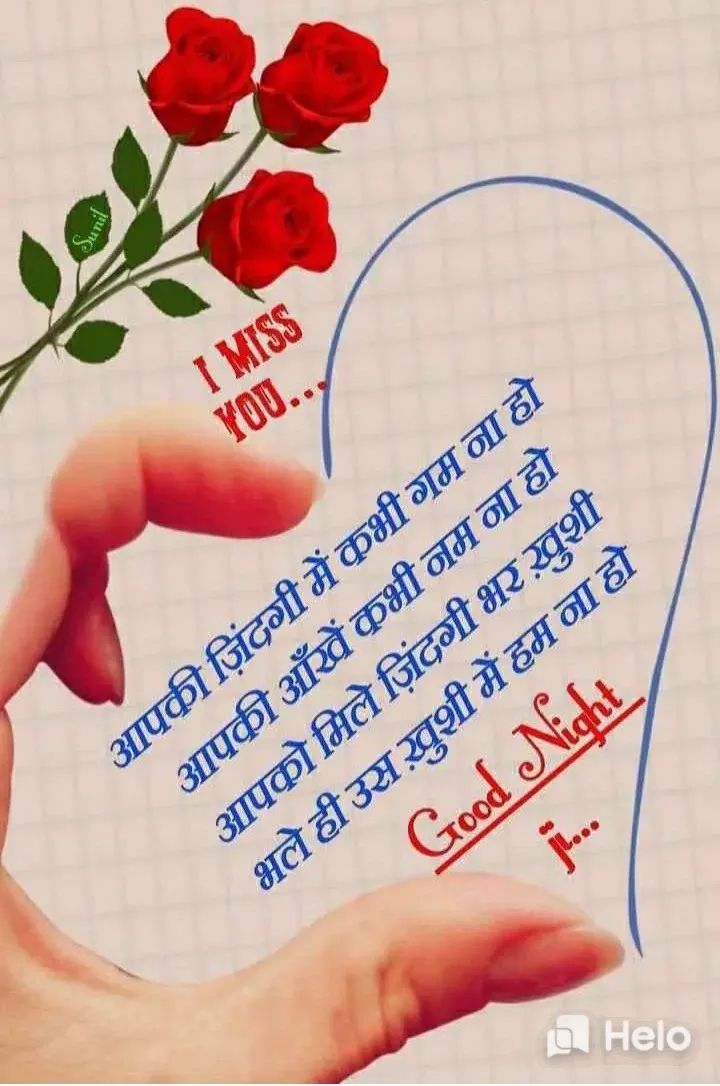 Sunil
I MISS
YOU...
आपकी ज़िंदगी में कभी गम ना हो
आपकी आँखें कभी नम ना हो
आपको मिले ज़िंदगी भर ख़ुशी
भले ही उस ख़ुशी में हम ना हो
Good Night
ji...
Helo